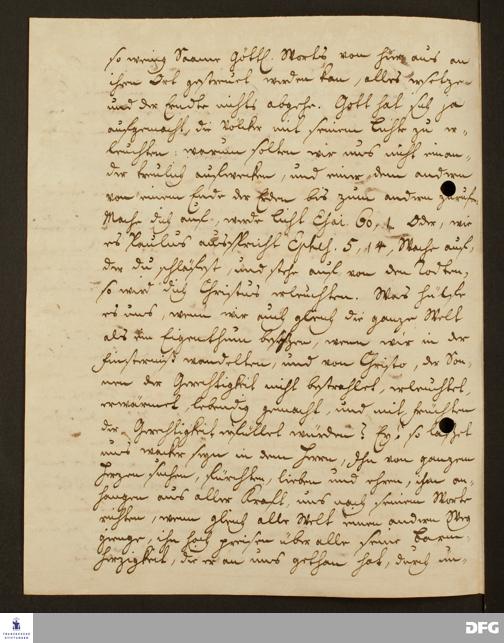 so wenig Saame Göttl. Worts von hier aus an
ihren Ort gestreuet werden kan, alles ersetzen
und der Erndte nichts abgehe. Gott hat sich ja
aufgemacht, die Völker mit seinem Lichte zu er-
leuchten: warum solten wir uns nicht einan-
der treulich aufwecken, und einer dem andern
von einem Ende der Erden bis zum andern zurufen
Mache dich auf, werde licht Esai. 60, 1. Oder, wie
es Paulus ausspricht Epheß. 5, 14, Wache auf,
der du schläfest, und stehe auf von den Todten,
so wird dich Christus erleuchten. Was hülfe
es uns, wenn wir auch gleich die ganze Welt
als ein Eigenthum besäßen, wenn wir in der
Finsterniß wandelten, und von Christo, der Son-
nen der Gerechtigkeit nicht bestrahlet, erleuchtet,
erwärmet, lebendig gemacht, und mit Früchten
der Gerechtigkeit erfüllet würden? Ey! so lasset
uns wacker seyn in dem Herrn, Ihn von ganzem
Herzen suchen, fürchten, lieben und ehren, ihm an-
hangen aus aller Kraft, uns nach seinem Worte
richten, wenn gleich alle Welt einen andern Weg
gienge, ihn hoch preisen über alle seine Barm-
herzigkeit, die er an uns gethan hat, durch un-
FRANCKESCHE
STIFTUNGEN
DFG